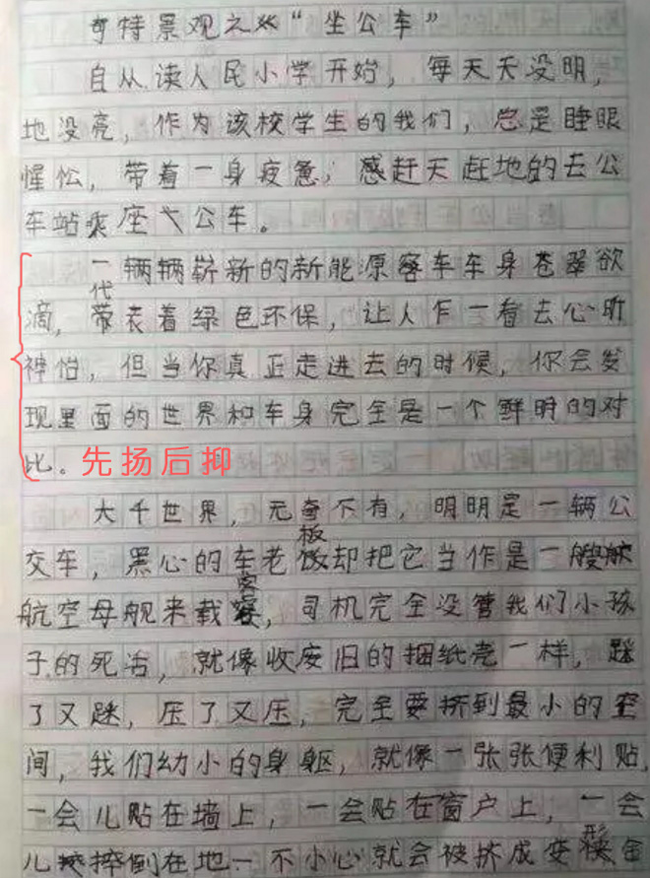 奇特景观之 “坐公车”
自从读人民小学开始，每天天没明，
地没亮，作为该校学生的我们，总是睡眼
惺忪，带着一身疲惫，感赶天赶地的去公
车站乘座公车。
一辆辆崭新的新能源客车车身苍翠欲
滴，代表着绿色环保，让人乍一看去心旷
神怡，但当你真正走进去的时候，你会发
现里面的世界和车身完全是一个鲜明的对
比。先扬后抑
大千世界，无奇不有，明明是一辆公
交车，黑心的车老板却把它当作是一艘
航空母舰来载客，司机完全没管我们小孩
子的死活，就像收废旧的捆纸壳一样，踩
了又踩，压了又压，完全要挤到最小的空
间，我们幼小的身躯，就像一张张便利贴，
一会儿贴在墙上，一会贴在窗户上，一会
儿摔倒在地一不小心就会被挤成变形金